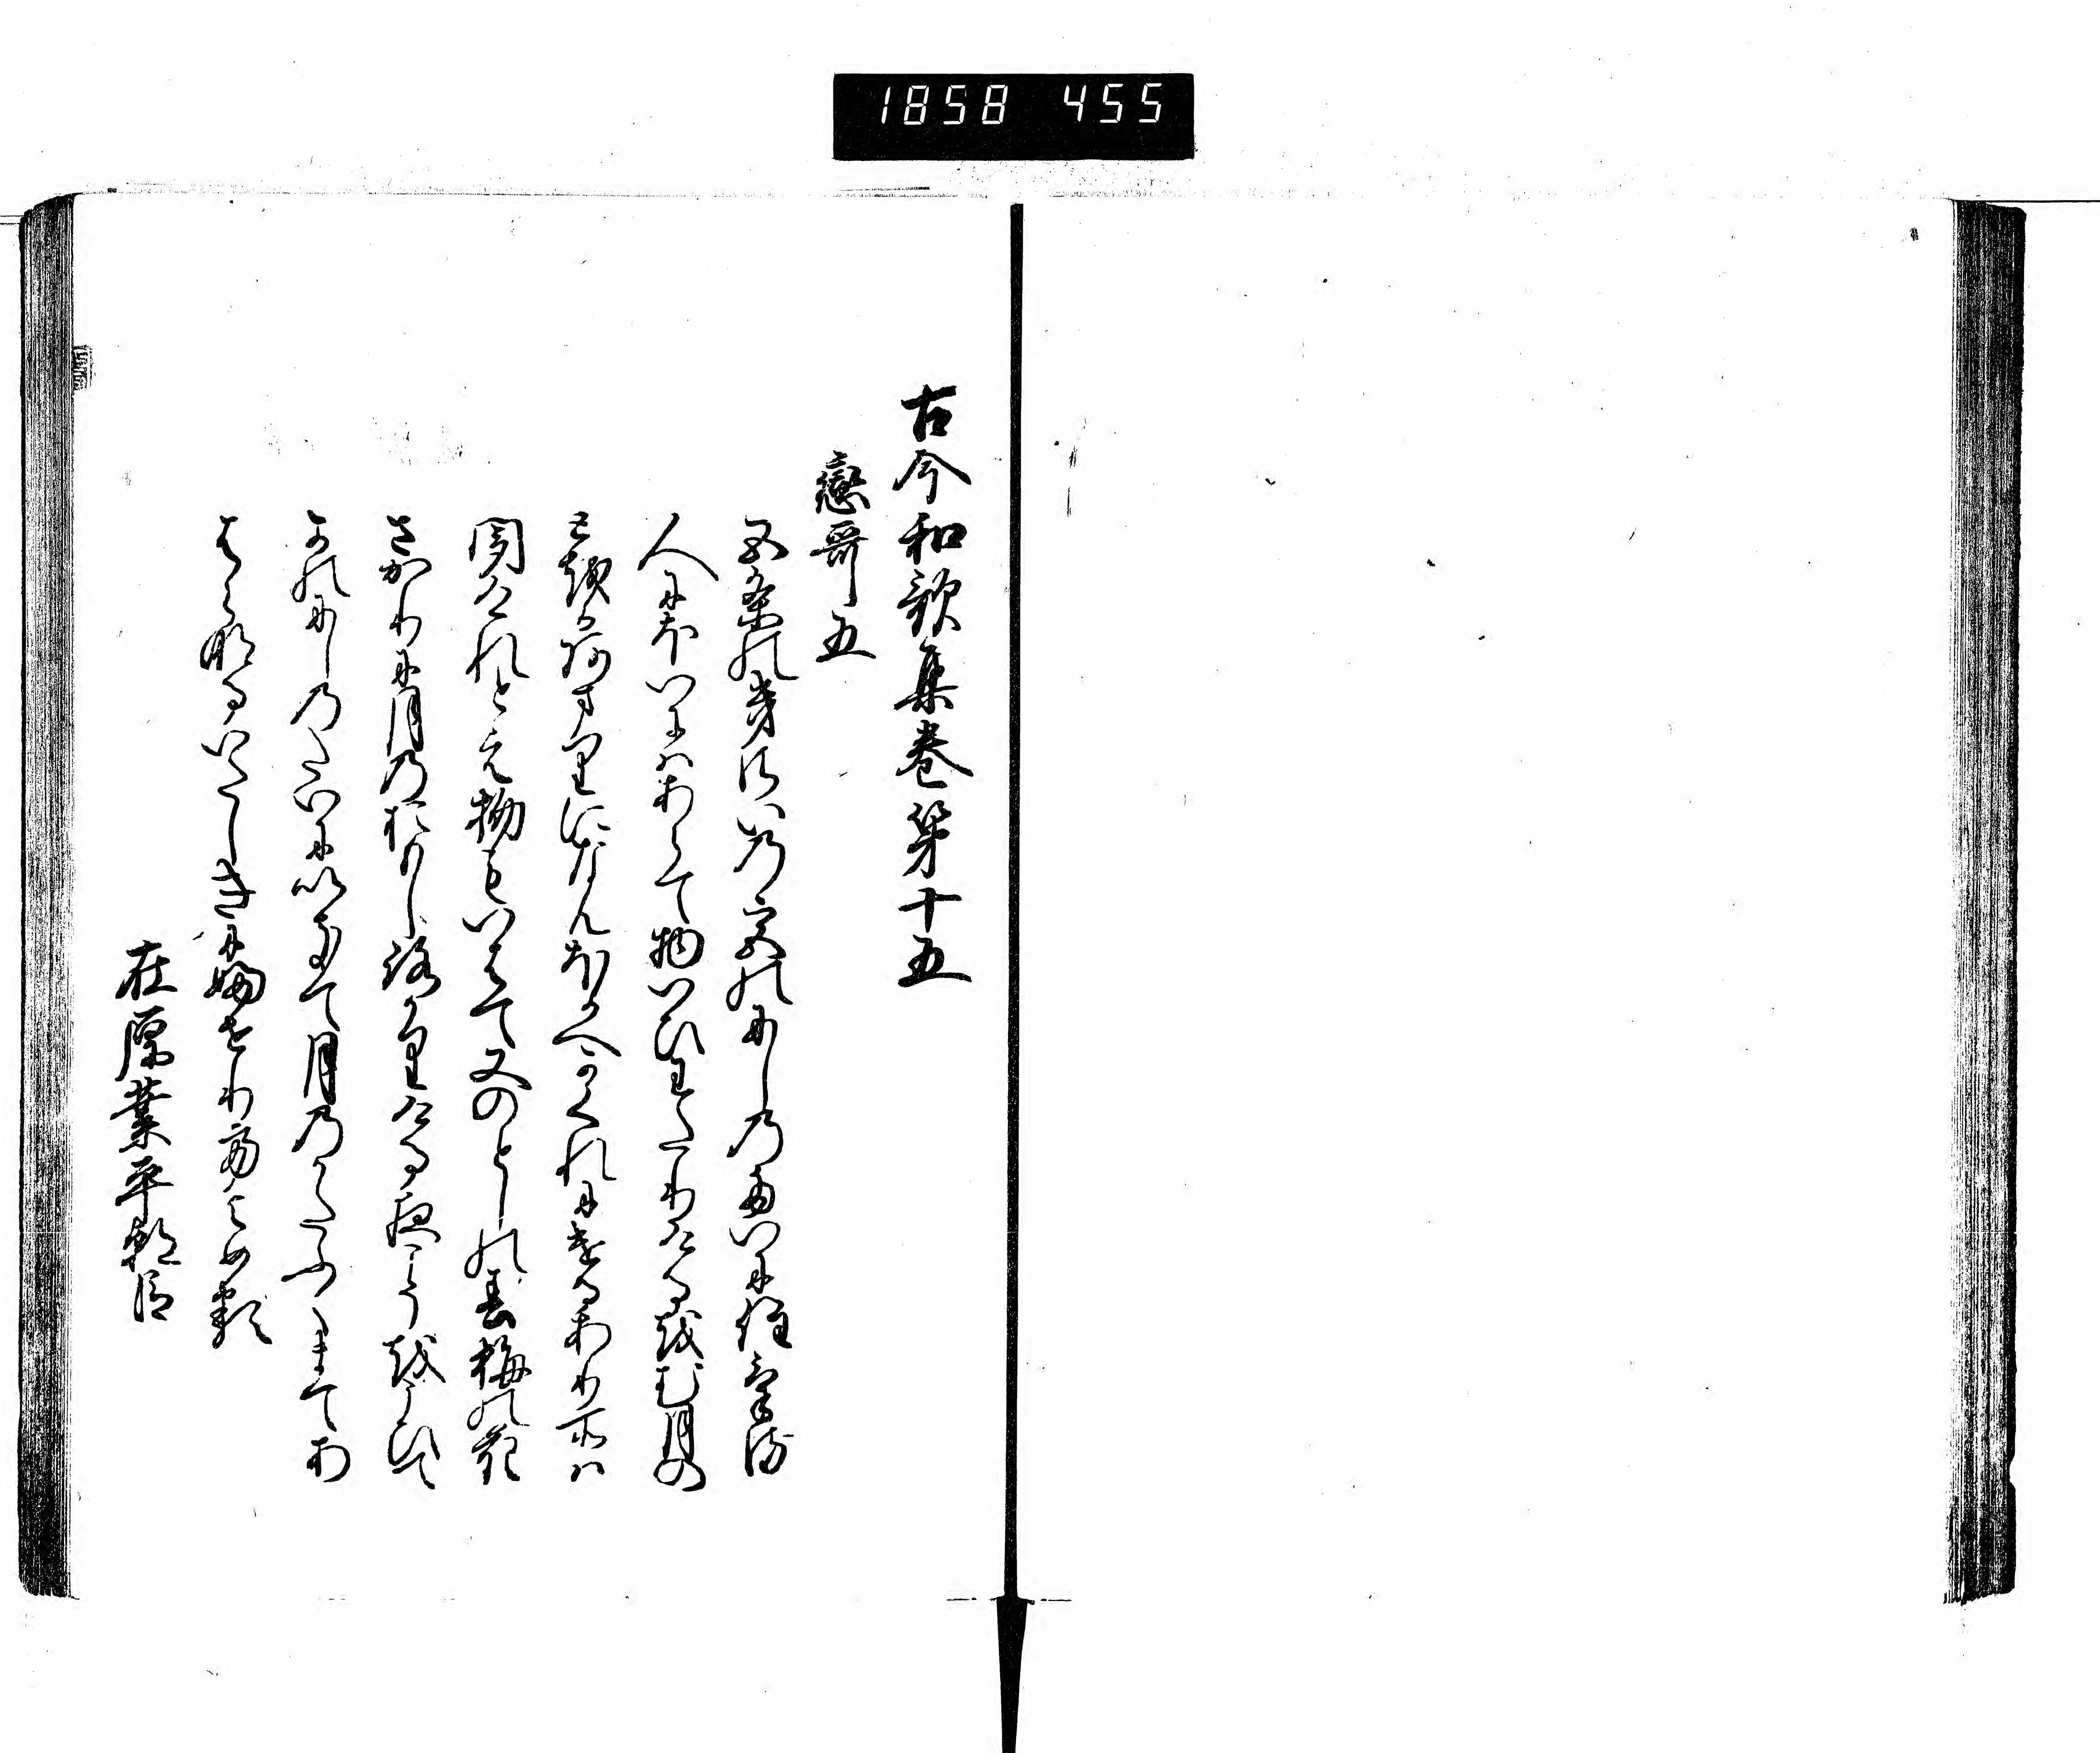 1858 455
古今和歌集巻第十五
戀哥五
五条の きさいの宮のにしのたいにすみける
人にほいにはあらて物いひわたりけるをむ月の
とをかあまりになんほかへかくれにけるありところは
聞けれとえ物もいはて又のとしの春梅の花
さかりに月のおもしろかりける夜こそをこひて
かのにしのたいにいきて月のかたふくまてあ
はらなるいたしきにふせりてよめる
在原業平朝臣